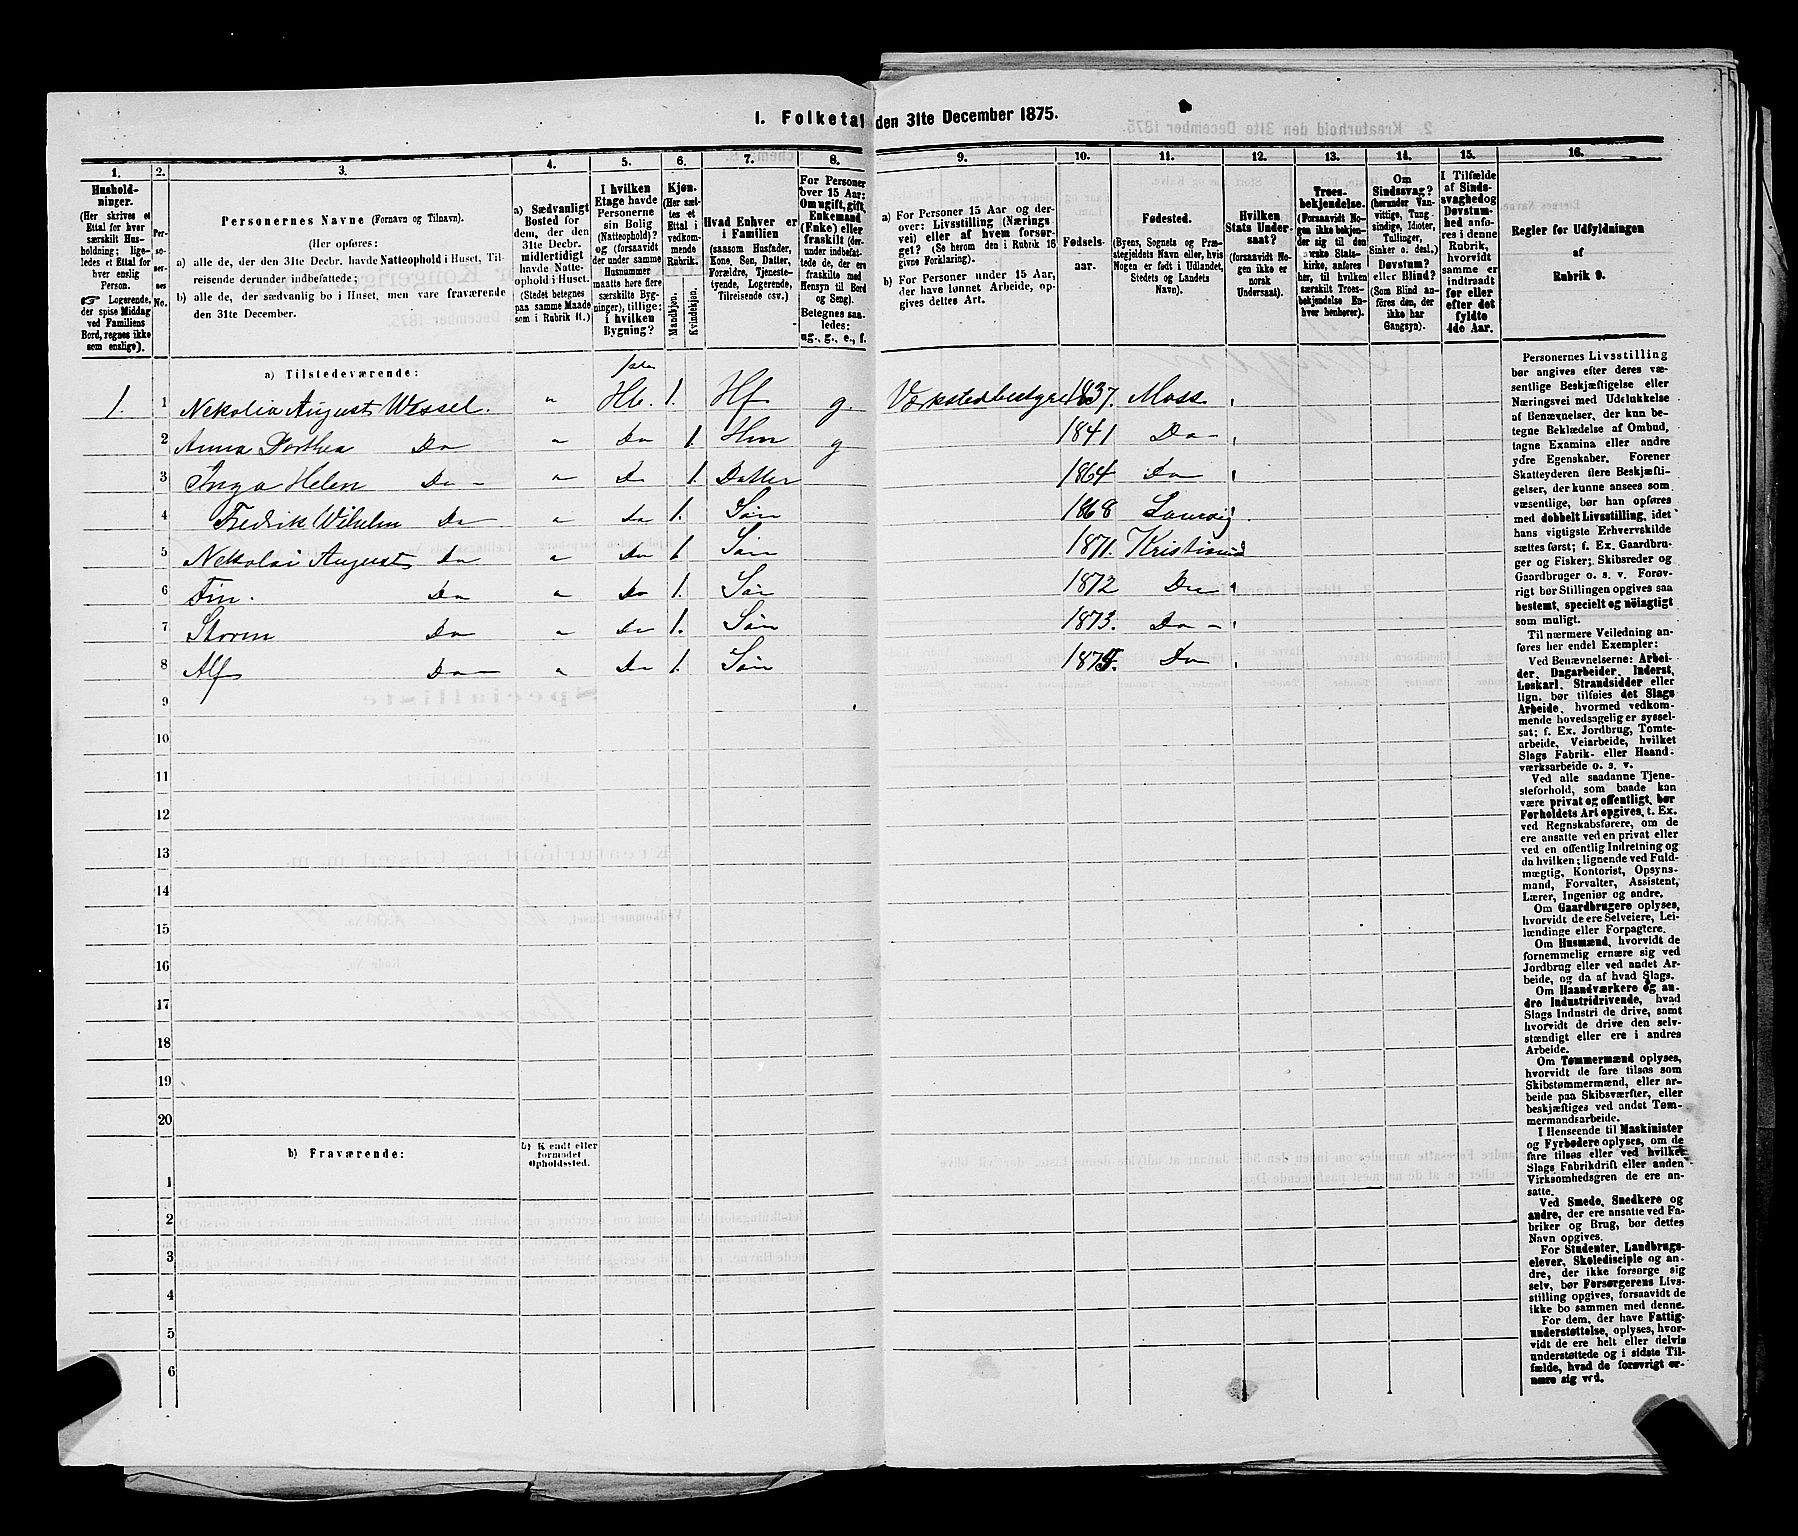 1. Folketal den 31te December 1875.
1. 2. 3. 4. 5. 6. 7. 8. 9. 10. 11. 12. 13. 14. 15. 16.
Husholdninger.
(Her skrives et
Ettal for hver
særskilt Husholdning;
ligeledes et Ettal for
hver enslig
Person.
Logerende,
der spise Middag
ved Familiens
Bord, regnes ikke
som enslige).
Personernes No.
Personernes Navne (Fornavn og Tilnavn).
(Her opføres:
a) alle de, der den 31te Decbr. havde Natteophold i Huset, Tilreisende derunder indbefattede;
b) alle de, der sædvanlig bo i Huset, men vare fraværende
den 31te December.
a) Sædvanligt
Bosted for
dem, der den
31te Decbr.
midlertidigt
havde Natteophold i Huset.
(Stedet betegnes
paa samme Maade
som i Rubrik 11.)
I hvilken
Etage havde
Personerne
sin Bolig
(Natteophold)?
og (forsaavidt
der under samme
Husnummer
maatte høre flere
særskilte Bygninger), tillige:
i hvilken
Bygning?
Kjøn.
(Her sættes et
Ettal i
vedkommende
Rubrik.
Mandkjøn.
Kvindekjøn.
Hvad Enhver er
i Familien
(saasom Husfader,
Kone, Søn, Datter,
Forældre, Tjenestetyende, Logerende,
Tilreisende osv.)
For Personer
over 15 Aar:
Om ugift, gift,
Enkemand
(Enke) eller
fraskilt (derunder indbefattede de, der ere
fraskilte med
Hensyn til Bord
og Seng).
Betegnes saaledes:
ug., g., e., f.
a) For Personer 15 Aar og derover: Livsstilling (Næringsvei) eller af hvem forsørget? (Se herom den i Rubrik 16
givne Forklaring).
b) For Personer under 15 Aar,
der have lønnet Arbeide, opgives dettes Art.
Fødselsaar.
Fødested.
(Byens, Sognets og Præstegjeldets Navn eller, hvis
Nogen er født i Udlandet,
Stedets og Landets
Navn).
Hvilken
Stats Undersaat?
(forsaavidt
Nogen ikke er
norsk
Undersaat).
Troesbekjendelse.
(Forsaavidt Nogen ikke bekjender sig til den
norske Statskirke, anføres
her, til hvilken
særskilt Troesbekjendelse Enhver henhører).
Om
Sindssvag?
(herunder Vanvittige, Tungsindige, Idioter,
Tullinger,
Sinker o. desl.),
Døvstum?
eller Blind?
(Som Blind anføres den, der
ikke har
Gangsyn).
I Tilfælde
af Sindssvaghed og
Døvstumhed anføres i denne
Rubrik,
hvorvidt
samme er
indtraadt
før eller
efter det
fyldte
4de Aar.
Regler for Udfyldningen
af
Rubrik 9.
a) Tilstedeværende:
1. 1 Nekolia August Wessel. " Hb. 1. Hf g. Værkstedbestyrer 1837. Moss
2 Anna Dorthea Do " Do 1. Hm g 1841 Do
3 Inga Helen Do " Do 1. Datter 1864 Do
4 Fredrik Wilhelm Do " Do 1. Søn 1868 Laurvig
5 Nekolai August Do " Do 1 Søn 1871.
6 Fin. Do " Do 1. Søn 1872 Do
7 Do " Do 1. Søn 1873. Do
8 Alf Do " Do 1. Søn 1875. Do
9
10
11
12
13
14
15
16
17
18
19
20
b) Fraværende:
b) Kjendt eller
formodet
Opholdssted.
1
2
3
4
5
6
Personernes Livsstilling
bør angives efter deres væsentlige Beskjæftigelse eller
Næringsvei med Udelukkelse
af Benævnelser, der kun betegne Beklædelse af Ombud,
tagne Examina eller andre
ydre Egenskaber. Forener
Skatteyderen flere Beskjæftigelser, der kunne ansees som
væsentlige, bør han opføres
med dobbelt Livsstilling, idet
hans vigtigste Erhvervskilde
sættes først; f. Ex. Gaardbruger og Fisker; Skibsreder og
Gaardbruger o. s. v. Forøvrigt bør Stillingen opgives saa
bestemt, specielt og nøiagtigt
som muligt.
Til nærmere Veiledning anføres her endel Exempler:
Ved Benævnelserne: Arbeider, Dagarbeider, Inderst,
Løskarl, Strandsidder eller
lign. bør tilføies det Slags
Arbeide, hvormed vedkommende hovedsagelig er sysselsat; f. Ex. Jordbrug, Tomtearbeide, Veiarbeide, hvilket
Slags Fabrik- eller Haandværksarbeide o. s. v.
Ved alle saadanne Tjenesteforhold, som baade kan
være privat og offentligt, bør
Forholdets Art opgives, t. Ex.
ved Regnskabsførere, om de
ere ansatte ved en privat eller
ved en offentlig Indretning og
da hvilken; lignende ved Fuldmægtig, Kontorist, Opsynsmand, Forvalter, Assistent,
Lærer, Ingeniør og andre.
Om Gaardbrugere oplyses,
hvorvidt de ere Selveiere, Leilændinge eller Forpagtere.
Om Husmænd, hvorvidt de
fornemmelig ernære sig ved
Jordbrug eller ved andet Arbeide, og da af hvad Slags.
Om Haandværkere og andre Industridrivende, hvad
Slags Industri de drive, samt
hvorvidt de drive den selvstændigt eller ere i andres
Arbeide.
Om Tømmermænd oplyses,
hvorvidt de fare tilsøs som
Skibstømmermænd, eller arbeide paa Skibsværfter, eller
beskjæftiges ved andet Tømmermandsarbeide.
I Henseende til Maskinister
og Fyrbødere oplyses, om de
fare tilsøs eller ved hvilket
Slags Fabrikdrift eller anden
Virksomhedsgren de ere ansatte.
Ved Smede, Snedkere og
andre, der ere ansatte ved Fabriker og Brug, bør dettes
Navn opgives.
For Studenter, Landbrugselever, Skoledisciple og andre, der ikke forsørge sig
selv, bør Forsørgerens Livsstilling opgives, forsaavidt de
ikke bo sammen med denne.
For dem, der have Fattigunderstøttelse, oplyses, hvorvidt de ere helt eller delvis
understøttede og i sidste Tilfælde, hvad de forøvrigt ernære sig ved.